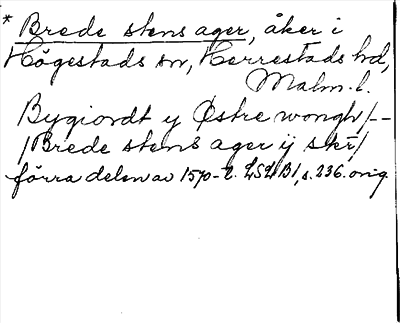 * Brede stens ager, åker i
Högestads sn, Herrestads hd,
Malm. l.
Bygiordt y Østre wongh/--
/Brede stens ager ij skr/
förra delen av 1570-t. LSLB1, s. 236. orig